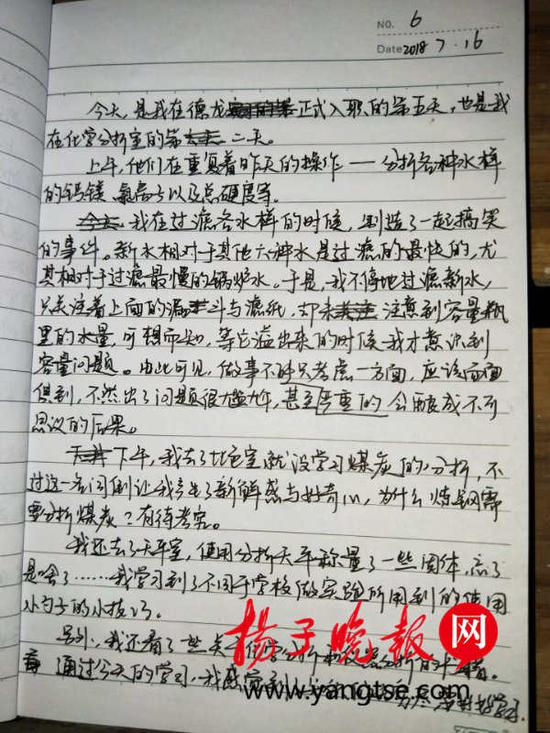 NO. 6
Date 2018 7.16
今天,是我在德龙正式入职的第五天,也是我
在化学分析室的第二天。
上午,他们在重复着昨天的操作——分析各种水样
的钙镁、氯离子以及总硬度等。
我在过滤各水样的时候,制造了一起搞笑
的事件。新水相对于其他六种水是过滤的最快的,尤
其相对于过滤最慢的锅炉水。于是,我不停地过滤新水,
只关注着上面的漏斗与滤纸,却未注意到容量瓶
里的水量,可想而知,等它溢出来的时候我才意识到
容量问题。由此可见,做事不能只考虑一方面,应该面面
俱到,不然出了问题很尴尬,甚至严重的会酿成不可
思议的后果。
下午,我去了比色室,就没学习煤炭的分析,不
过这一名词倒让我产生了新鲜感与好奇心,为什么炼钢需
要分析煤炭?有待考究。
我还去了天平室,使用分析天平称量了一些固体,忘了
是啥了……我学习到了不同于学校做实验所用到的使用
小勺子的小技巧。
另外,我还看了一些关于化学分析和仪器分析的书籍。
通过今天的学习,我感觉到
扬子晚报网
www.yangtse.com